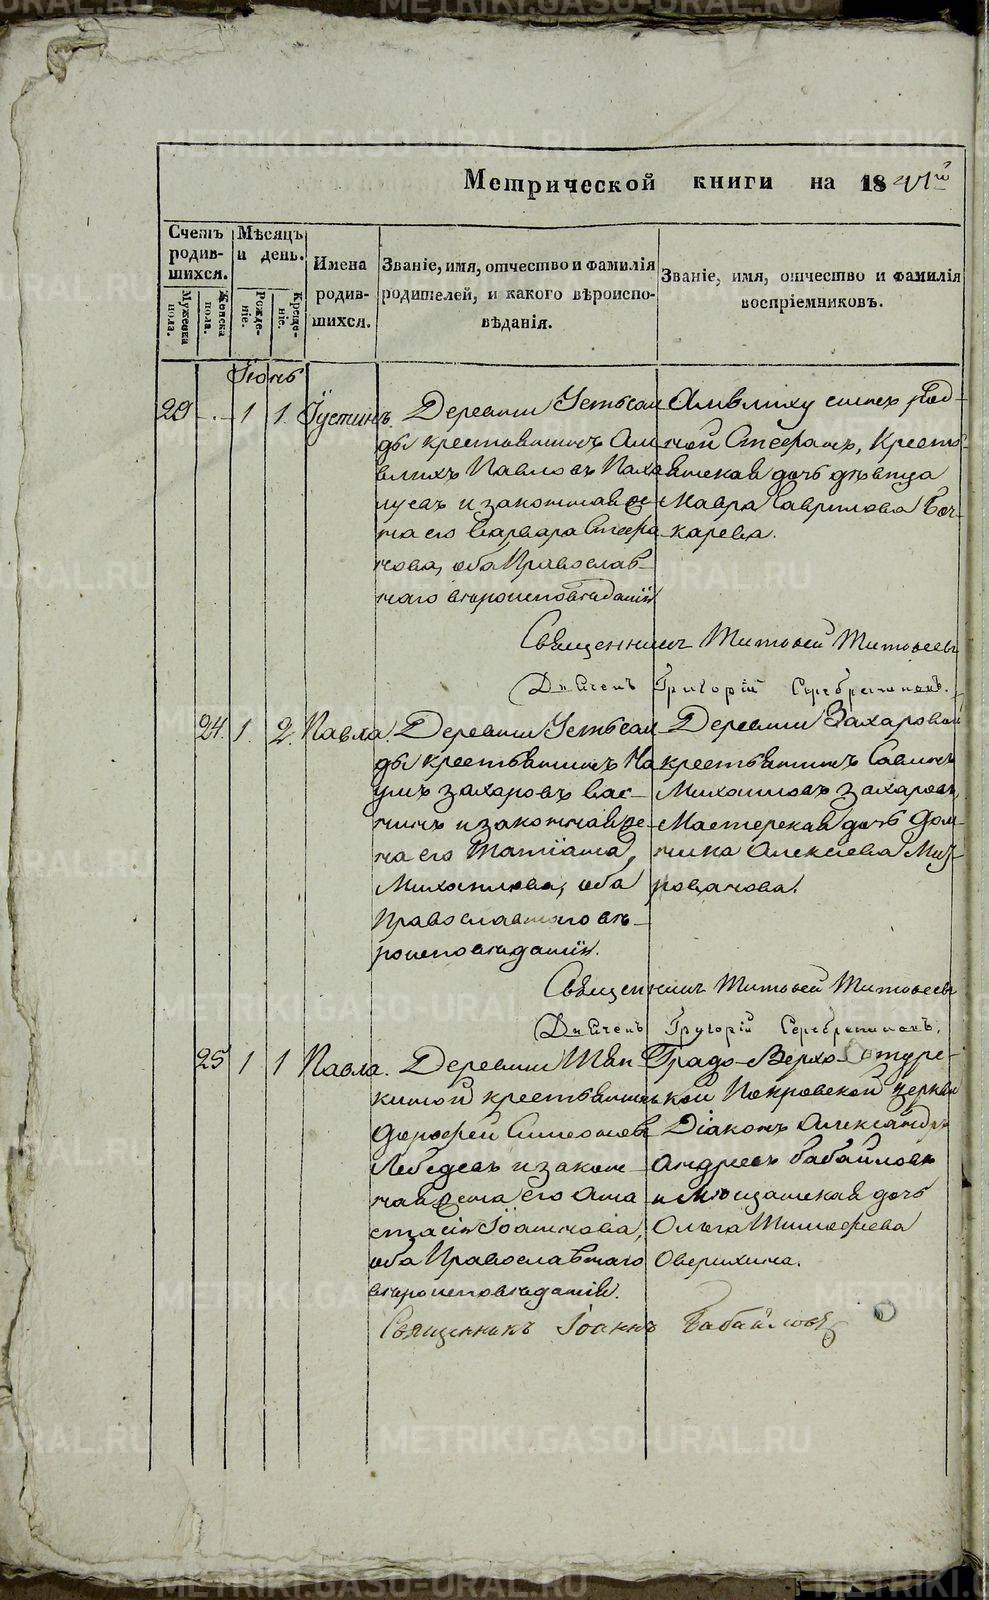 METRIKI.GASO-URAL.RU
Метрической книги на 1841й
Счетъ родившихся.
Мужеска пола.
Женска пола.
Мѣсяцъ и день.
Рожденіе.
Крещеніе.
Имена родившихся.
Званіе, имя, отчество и фамилія родителей, и какого вѣроисповѣданія.
Званіе, имя, отчество и фамилія воспріемниковъ.
Іюнь
29 - 1 1. Іустинъ.
Деревни Усть
ды крестьянинъ
Павловъ
и законная же
на его Варвара Стефа
нова, оба Православ
наго вѣроисповѣданія
сынъ род
ной Стефанъ, Крестья
нская дочь дѣвица
Мавра Гаврилова Боч
карева.
Священникъ
Дьячекъ Григорій Серебренниковъ.
24. 1. 2. Павла.
Деревни Усть
ды крестьянинъ На
умъ Захаровъ Вас
нинъ и законная же
на его Татіана
Михаилова, оба
Православнаго вѣ
роисповѣданія.
Деревни Захаровой
крестьянинъ Савинъ
Михаиловъ Захаровъ,
Мастерская дочь Дом
ника Алексѣева
Священникъ
Дьячекъ Григорій Серебренниковъ.
25 1 1 Павла.
Деревни
киной крестьянинъ
Дорофей Симеоновъ
Лебедевъ и закон
ная жена его Ана
стасія Іоаннова,
оба Православнаго
вѣроисповѣданія.
Градо-Верхотурс
кой Покровской церкви
Діаконъ Александръ
Андреевъ Бабайловъ
и Мѣщанская дочь
Ольга Тимофеева
Оверихина.
Священникъ Іоаннъ Бабайловъ